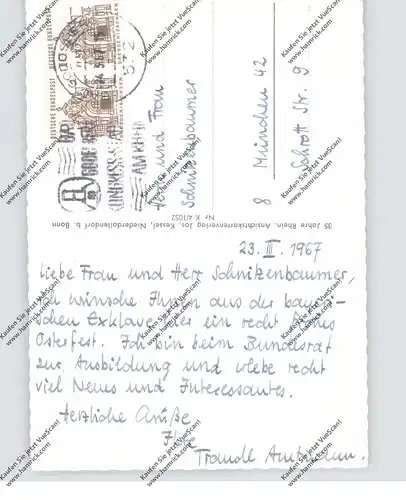 DEUTSCHE BUNDESPOST
DEUTSCHE BUNDESPOST
BAD GODESBERG
AM RHEIN
Herrn und Frau
Schnitzenbaumer
8 München 42
Schrott Str. 9
35 Jahre Rhein. Ansichtskartenverlag Jos. Kessel, Niederdollendorf b. Bonn
Nr. K 4/1052
23. III. 1967
Liebe Frau und Herr Schnitzenbaumer,
ich wünsche Ihnen aus der bayri-
schen Exklave ein recht
Osterfest. Ich bin beim Bundesrat
zur Ausbildung und erlebe recht
viel Neues und Interessantes.
Herzliche Grüße
Ihre
Traudl
Kaufen Sie jetzt VueScan!
www.hamrick.com